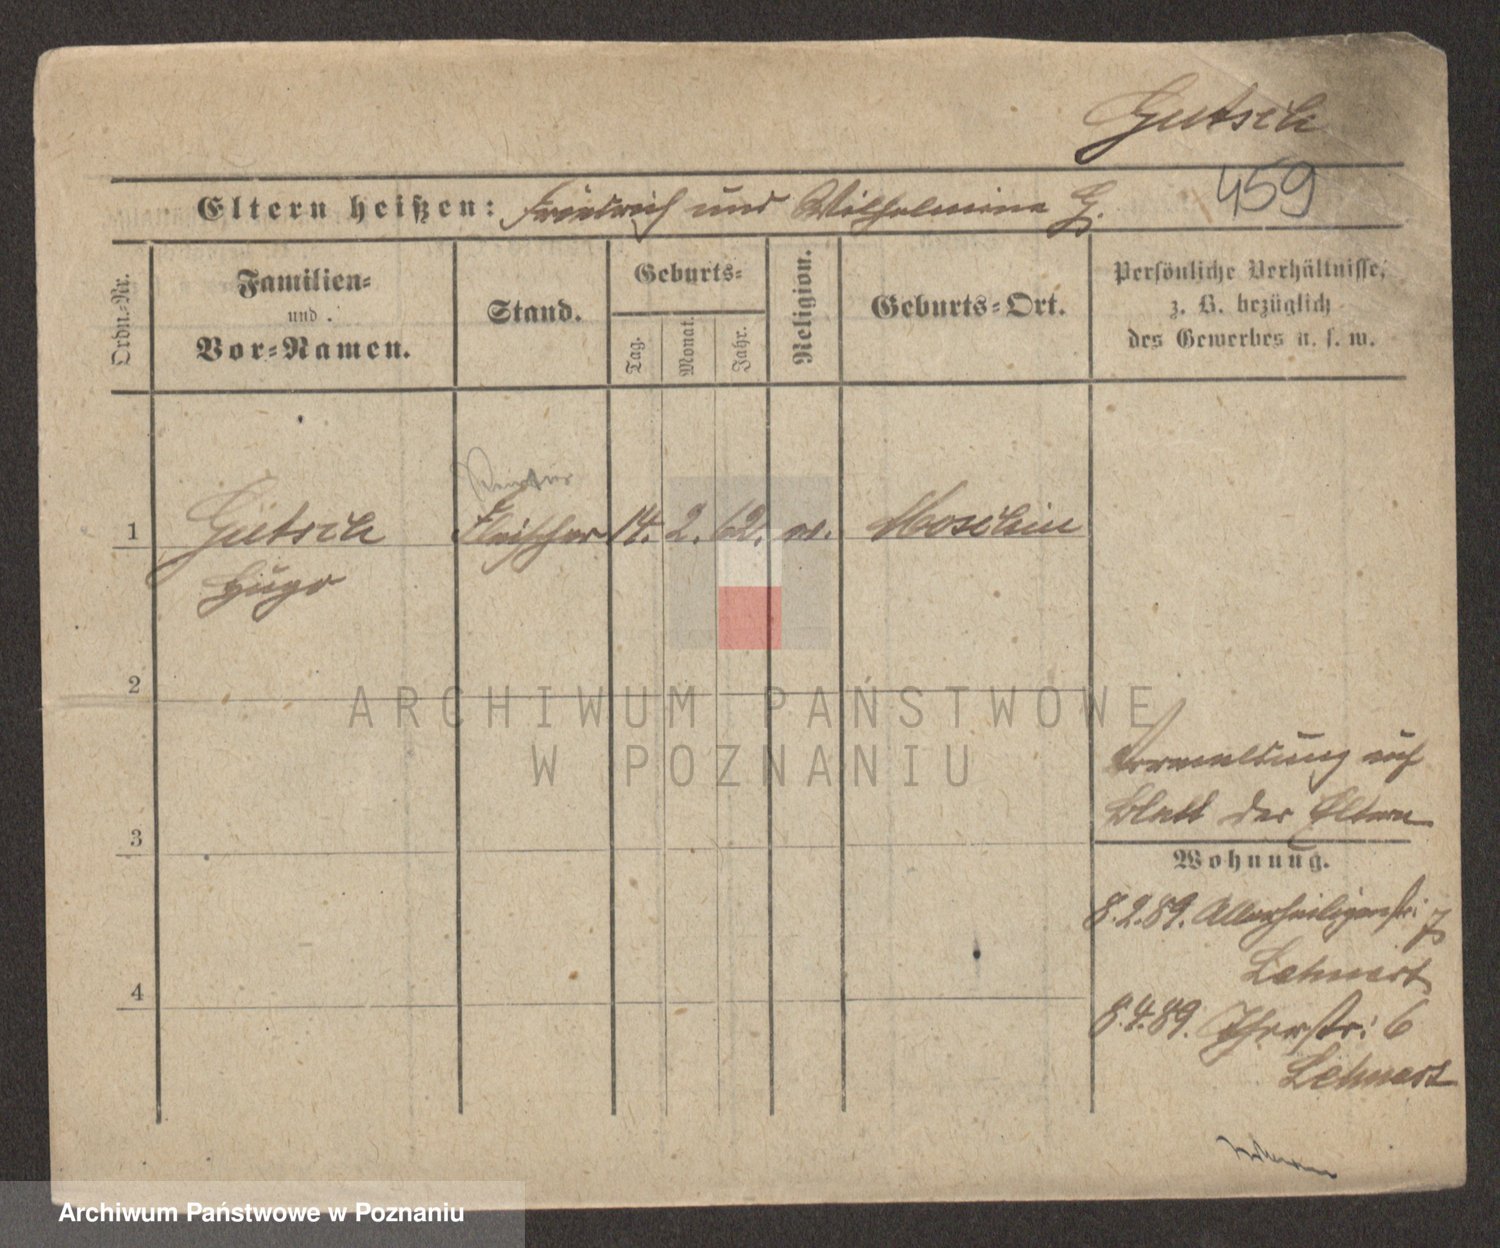 Gutsch
459
Eltern heißen: Friedrich und Wilhelmine G.
Ordn.-Nr.
Familien-
und
Vor-Namen.
Stand.
Geburts-
Tag.
Monat.
Jahr.
Religion.
Geburts-Ort.
Persönliche Verhältnisse,
z. B. bezüglich
des Gewerbes u. s. w.
1 Gutsch Fleischer 14. 2. 62. ev. Moschin
Hugo
2
3
4
Vermeldung auf
Blatt der Eltern
Wohnung.
8.2.89. Allerheiligenstr: 7
Lehnert
8.4.89. 6
Lehnert
ARCHIWUM PAŃSTWOWE
W POZNANIU
Archiwum Państwowe w Poznaniu